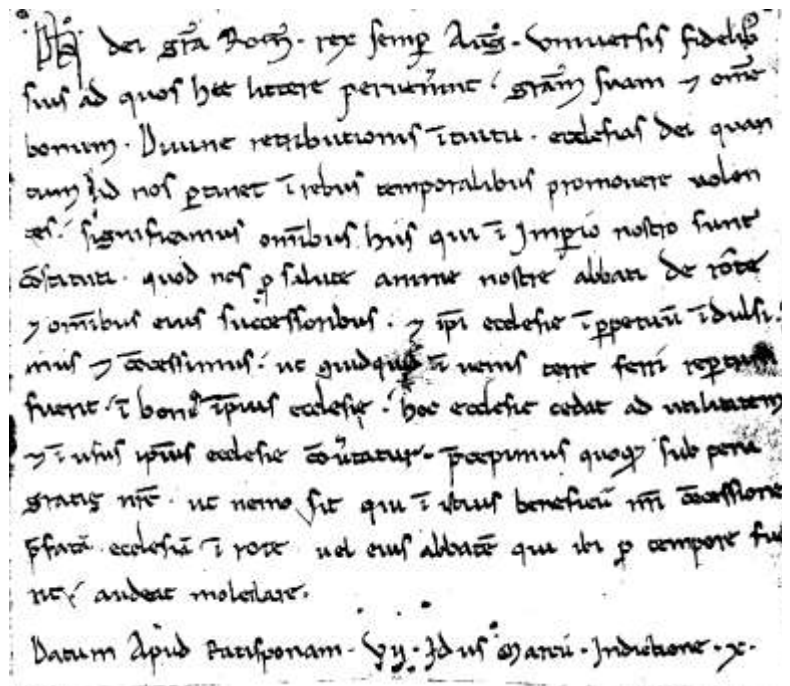 Ph̄. dei gr̄a Rom̄. rex semꝑ Auḡ. vniuersis fidelib;
suis ad quos hee littere peruenerint. gr̄am suam ⁊ om̄e
bonum. Diuine retributionis ītuitu. ecclesias dei quan
tum ad nos ꝑtinet ī rebus temporalibus promouere uolen
tes. significamus om̄ibus hiis qui ī Imꝑio nostro sunt
c̄ostituti. quod nos ꝓ salute anime nostre abbati de rote
⁊ om̄ibus eius successoribus. ⁊ ip̄i ecclesie ī ꝑpetuū īdulsi
mus ⁊ c̄ocessimus. ut quidquid ī uenis terre ferri reꝑtum
fuerit. ī bonis ip̄ius ecclesie. hoc ecclesie cedat ad utilitatem
⁊ ī usus ip̄ius ecclesie c̄ou̓tatur. p̄cepimus quoqꝫ sub pena
gratie nr̄e. ut nemo sit qui ī istius beneficii nr̄i c̄ocessione
p̄fatā ecclesiā ī rote uel eius abbatē qui ibi ꝓ tempore fue
rit. audeat molestare.
Datum Apud Ratisponam. vij. Idus Marcii. Indictione. x.